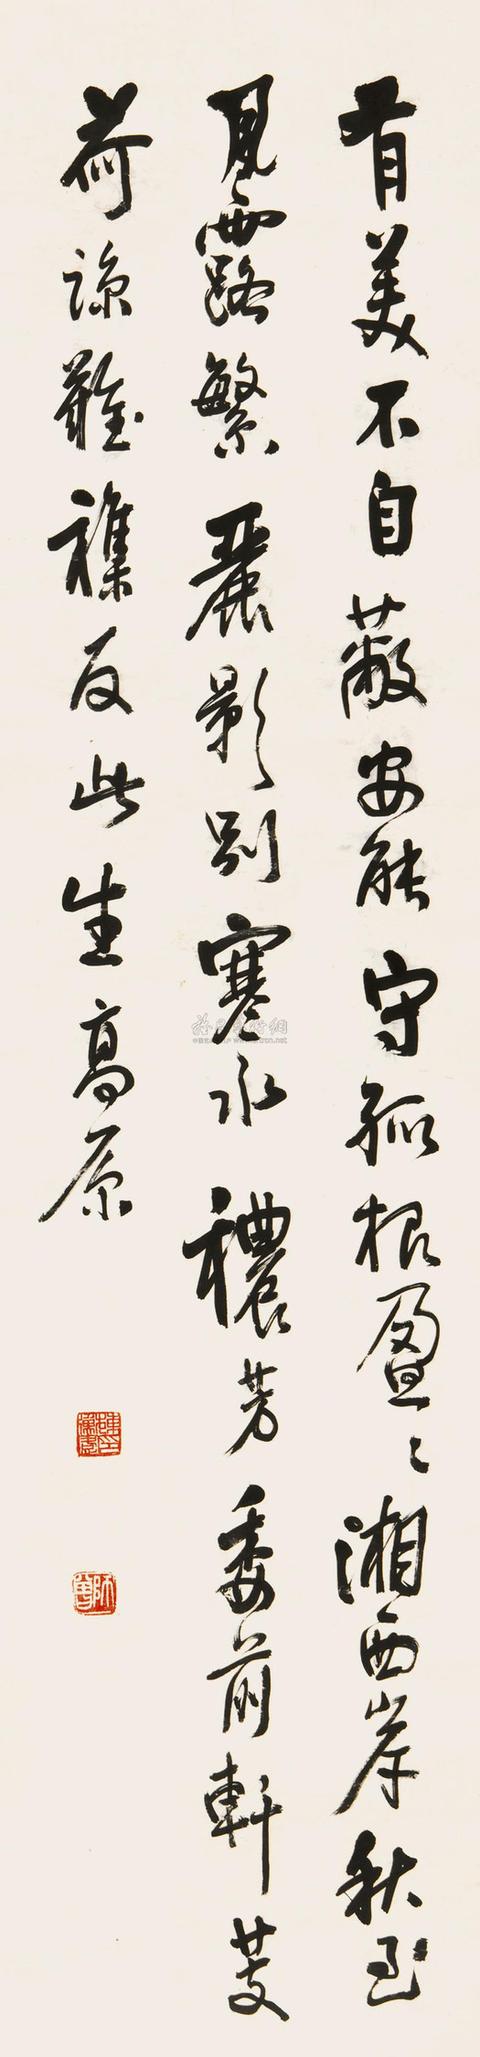 有美不自蔽安能守孤根盈〻湘西岸秋至
風露繁麗影別寒水穠芳委前軒芰
荷諒難襍反此生高原
師曾